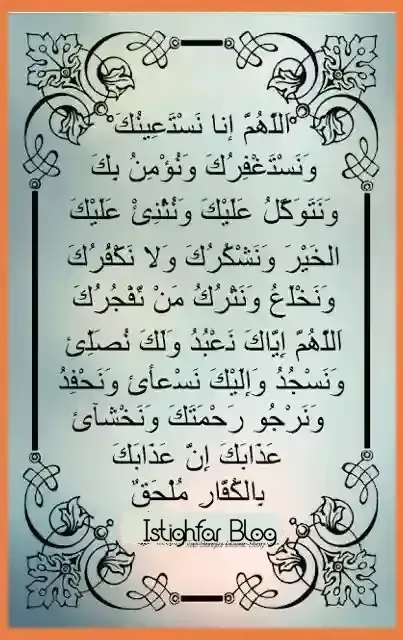 اَللّٰهُمَّ إنا نَسْتَعِينُكَ
وَنَسْتَغْفِرُكَ وَنُؤْمِنُ بِكَ
وَنَتَوَكَّلُ عَلَيْكَ وَنُثْنِئْ عَلَيْكَ
الخَيْرَ وَنَشْكُرُكَ وَلَا نَكْفُرُكَ
وَنَخْلَعُ وَنَتْرُكُ مَنْ يَّفْجُرُكَ
اَللّٰهُمَّ إِيَّاكَ نَعْبُدُ وَلَكَ نُصَلِّئ
وَنَسْجُدُ وَإِلَيْكَ نَسْعأئ وَنَحْفِدُ
وَنَرْجُو رَحْمَتَكَ وَنَخْشآئ
عَذَابَكَ إِنَّ عَذَابَكَ
بِالكُفَّارِ مُلْحَقٌ
Istighfar Blog